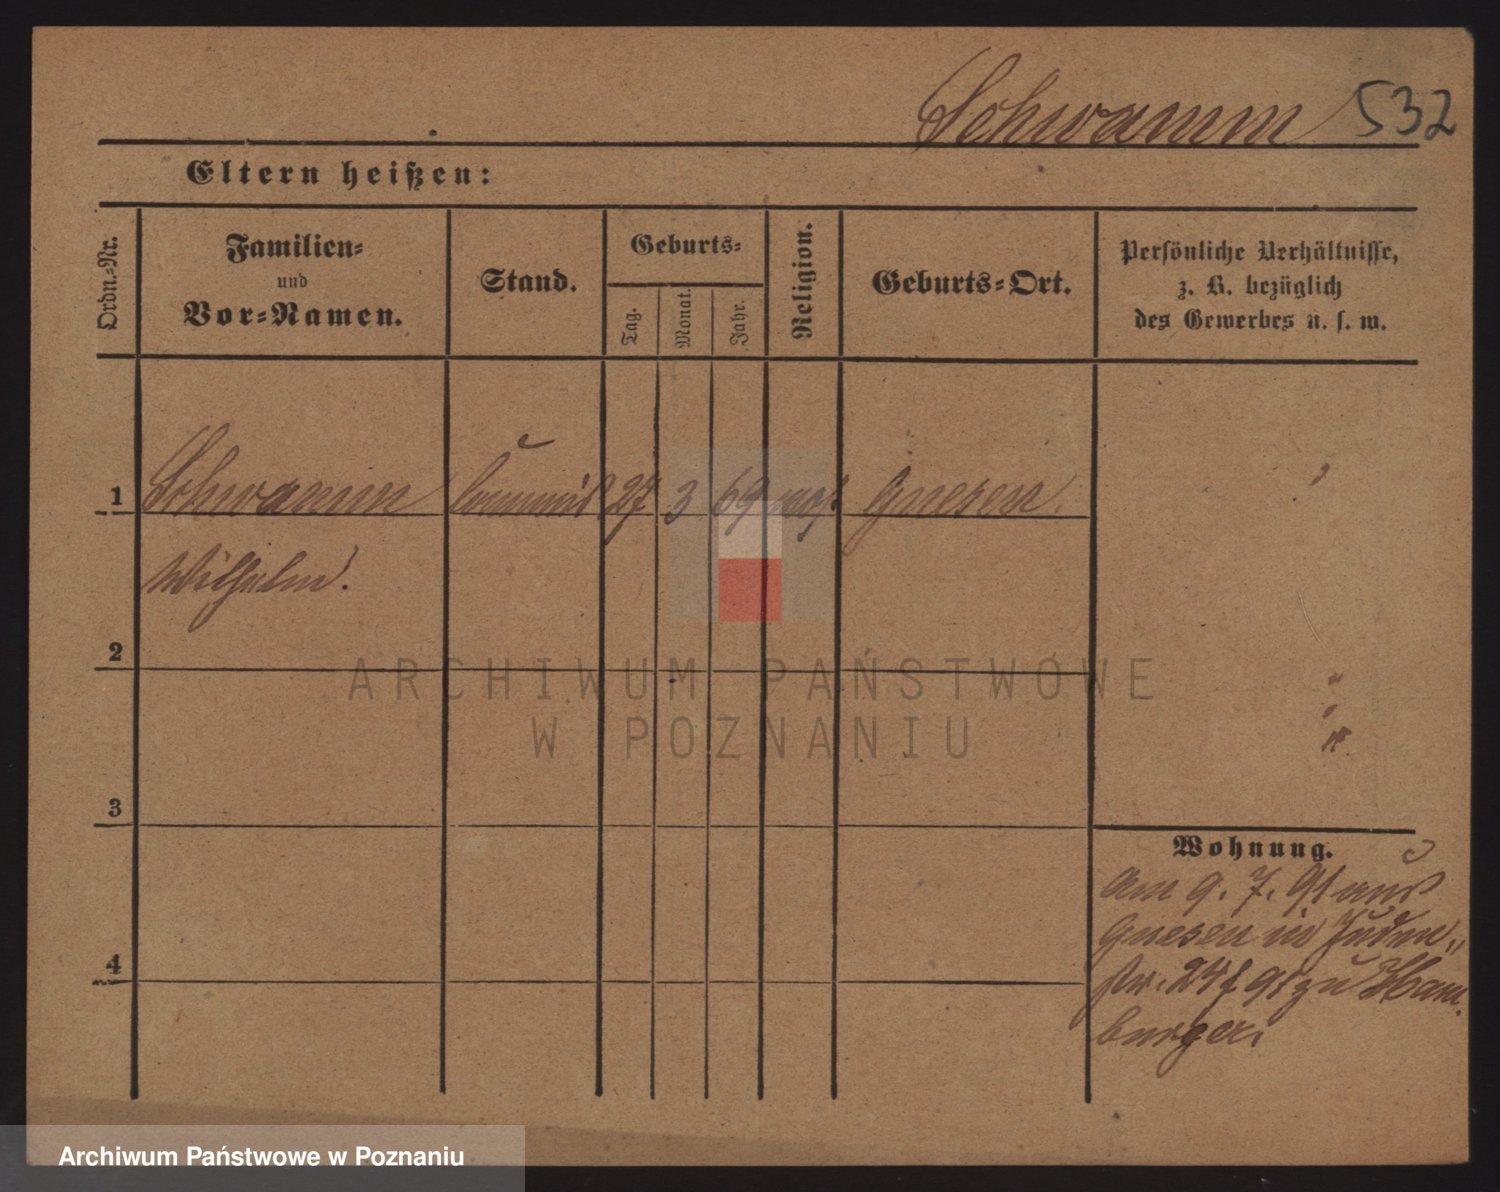 Schwamm 532
Eltern heißen:
Ordn.-Nr.
Familien-
und
Vor-Namen.
Stand.
Geburts-
Tag.
Monat.
Jahr.
Religion.
Geburts-Ort.
Persönliche Verhältnisse,
z. B. bezüglich
des Gewerbes u. s. w.
1 Schwamm Commis 27 3 69 mos. Gnesen.
Wilhelm.
2
3
4
Wohnung.
am 9. 7. 91 aus
Gnesen in Juden-
str. 24 zu Ham-
burger.
ARCHIWUM PAŃSTWOWE
W POZNANIU
Archiwum Państwowe w Poznaniu